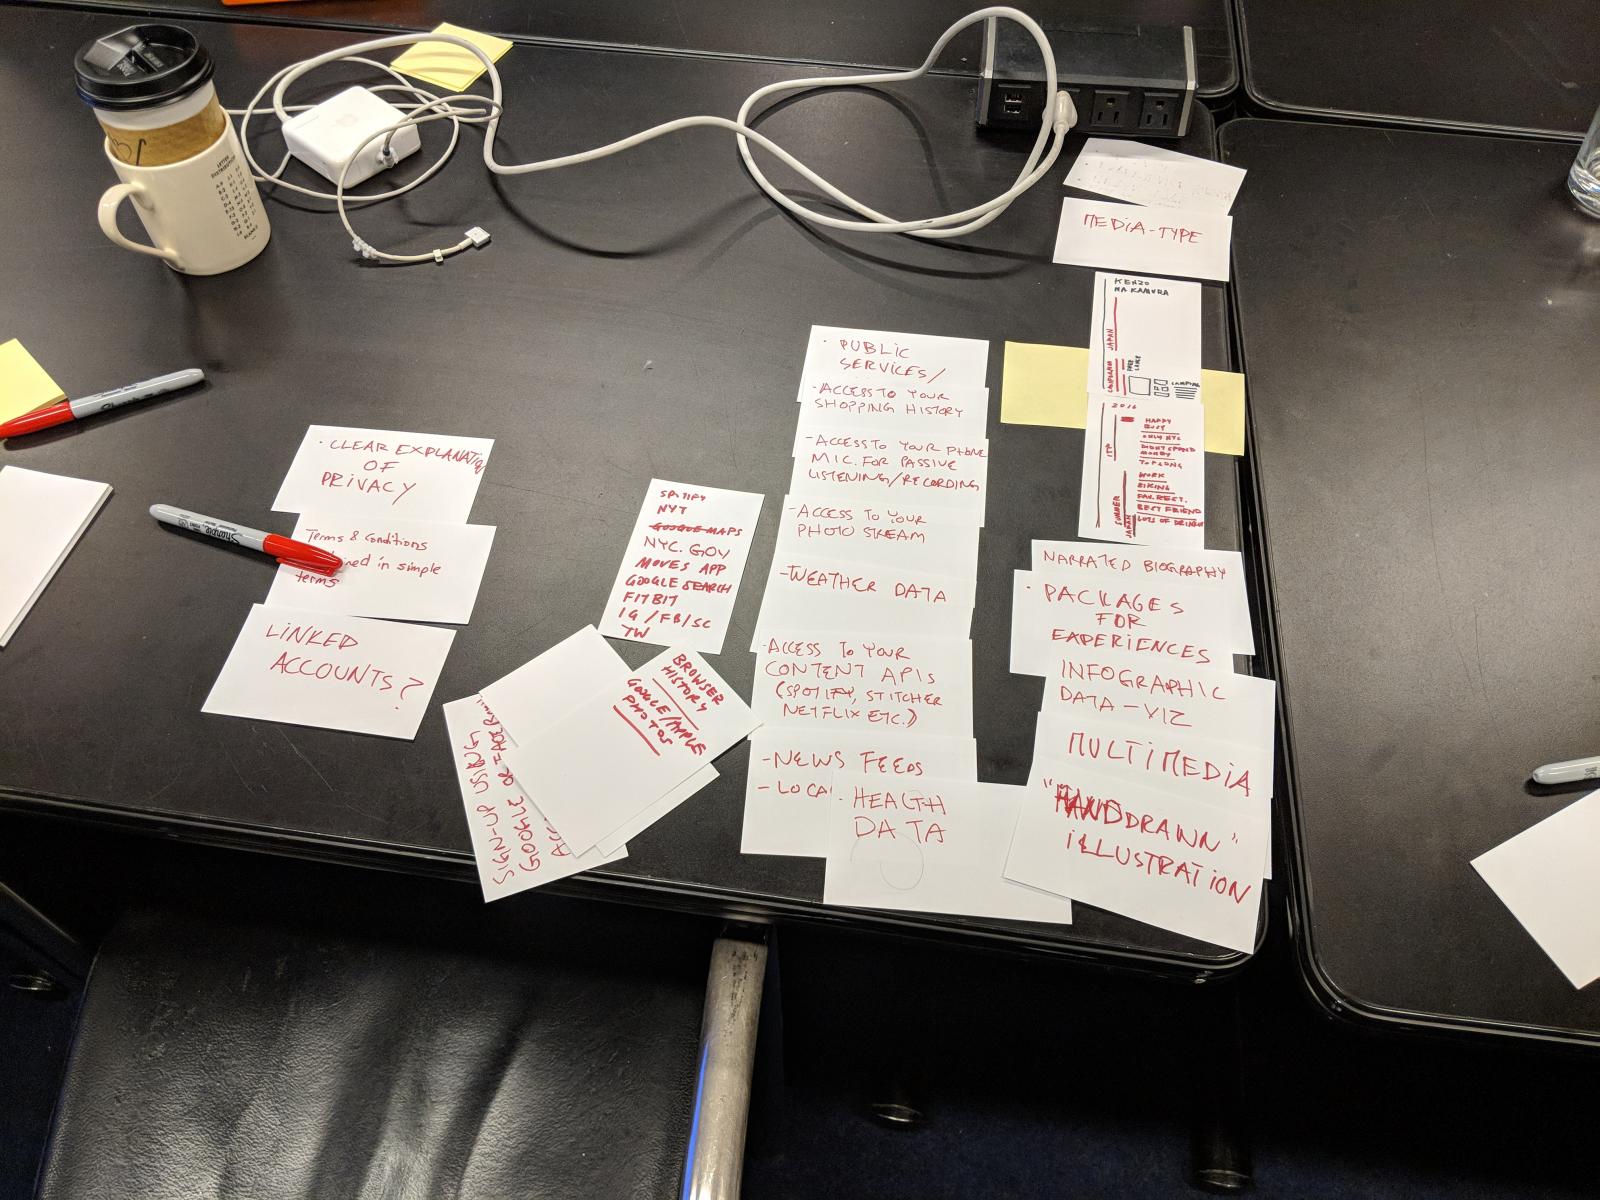 MEDIA-TYPE
KENZO
NAKAMURA
JAPAN
CALIFORNIA
CAMPING
2016
ITP
SUMMER
JAPAN
HAPPY
BUSY
ONLY NYC
DIDN'T SPEND
MONEY
TOP SONG
WORK
BIKING
FAV. REST.
BEST FRIEND
LOTS OF DRINKIN
NARRATED BIOGRAPHY
· PACKAGES
FOR
EXPERIENCES
INFOGRAPHIC
DATA-VIZ
MULTIMEDIA
"HANDDRAWN"
ILLUSTRATION
· PUBLIC
SERVICES/
-ACCESS TO YOUR
SHOPPING HISTORY
-ACCESS TO YOUR PHONE
MIC. FOR PASSIVE
LISTENING/RECORDING
-ACCESS TO YOUR
PHOTO STREAM
-WEATHER DATA
·ACCESS TO YOUR
CONTENT APIS
(SPOTIFY, STITCHER
NETFLIX ETC.)
-NEWS FEEDS
- LOCA
· HEALTH
DATA
SPOTIFY
NYT
GOOGLE MAPS
NYC.GOV
MOVES APP
GOOGLE SEARCH
FITBIT
IG/FB/SC
TW
BROWSER
HISTORY
GOOGLE/APPLE
PHOTOS
SIGN-UP USING
GOOGLE OR FACEBOOK
· CLEAR EXPLANATION
OF
PRIVACY
Terms & Conditions
in simple
terms
LINKED
ACCOUNTS?
Sharpie
LETTER
DISTRIBUTION